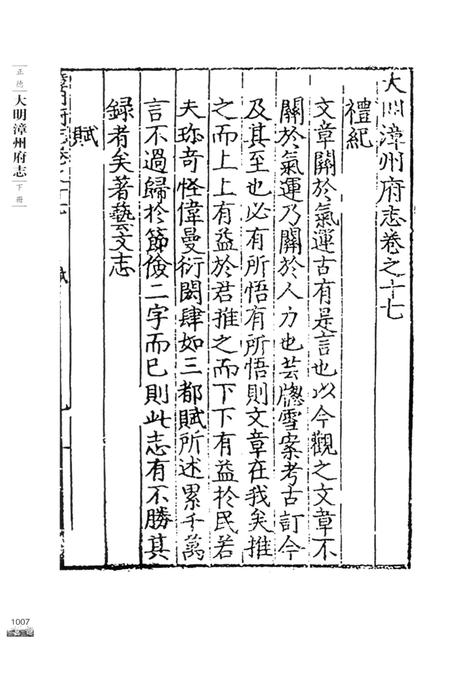 大明漳州府志卷之十七
禮紀
文章關於氣運古有是言也以今觀之文章不
關於氣運乃關於人力也芸牕雪案考古訂今
及其至也必有所悟有所悟則文章在我矣推
之而上上有益於君推之而下下有益於民若
夫珎奇怪偉曼衍閎肆如三都賦所述累千萬
言不過歸於節儉二字而已則此志有不勝其
録者矣著藝文志
賦
正德
大明漳州府志
下冊
1007